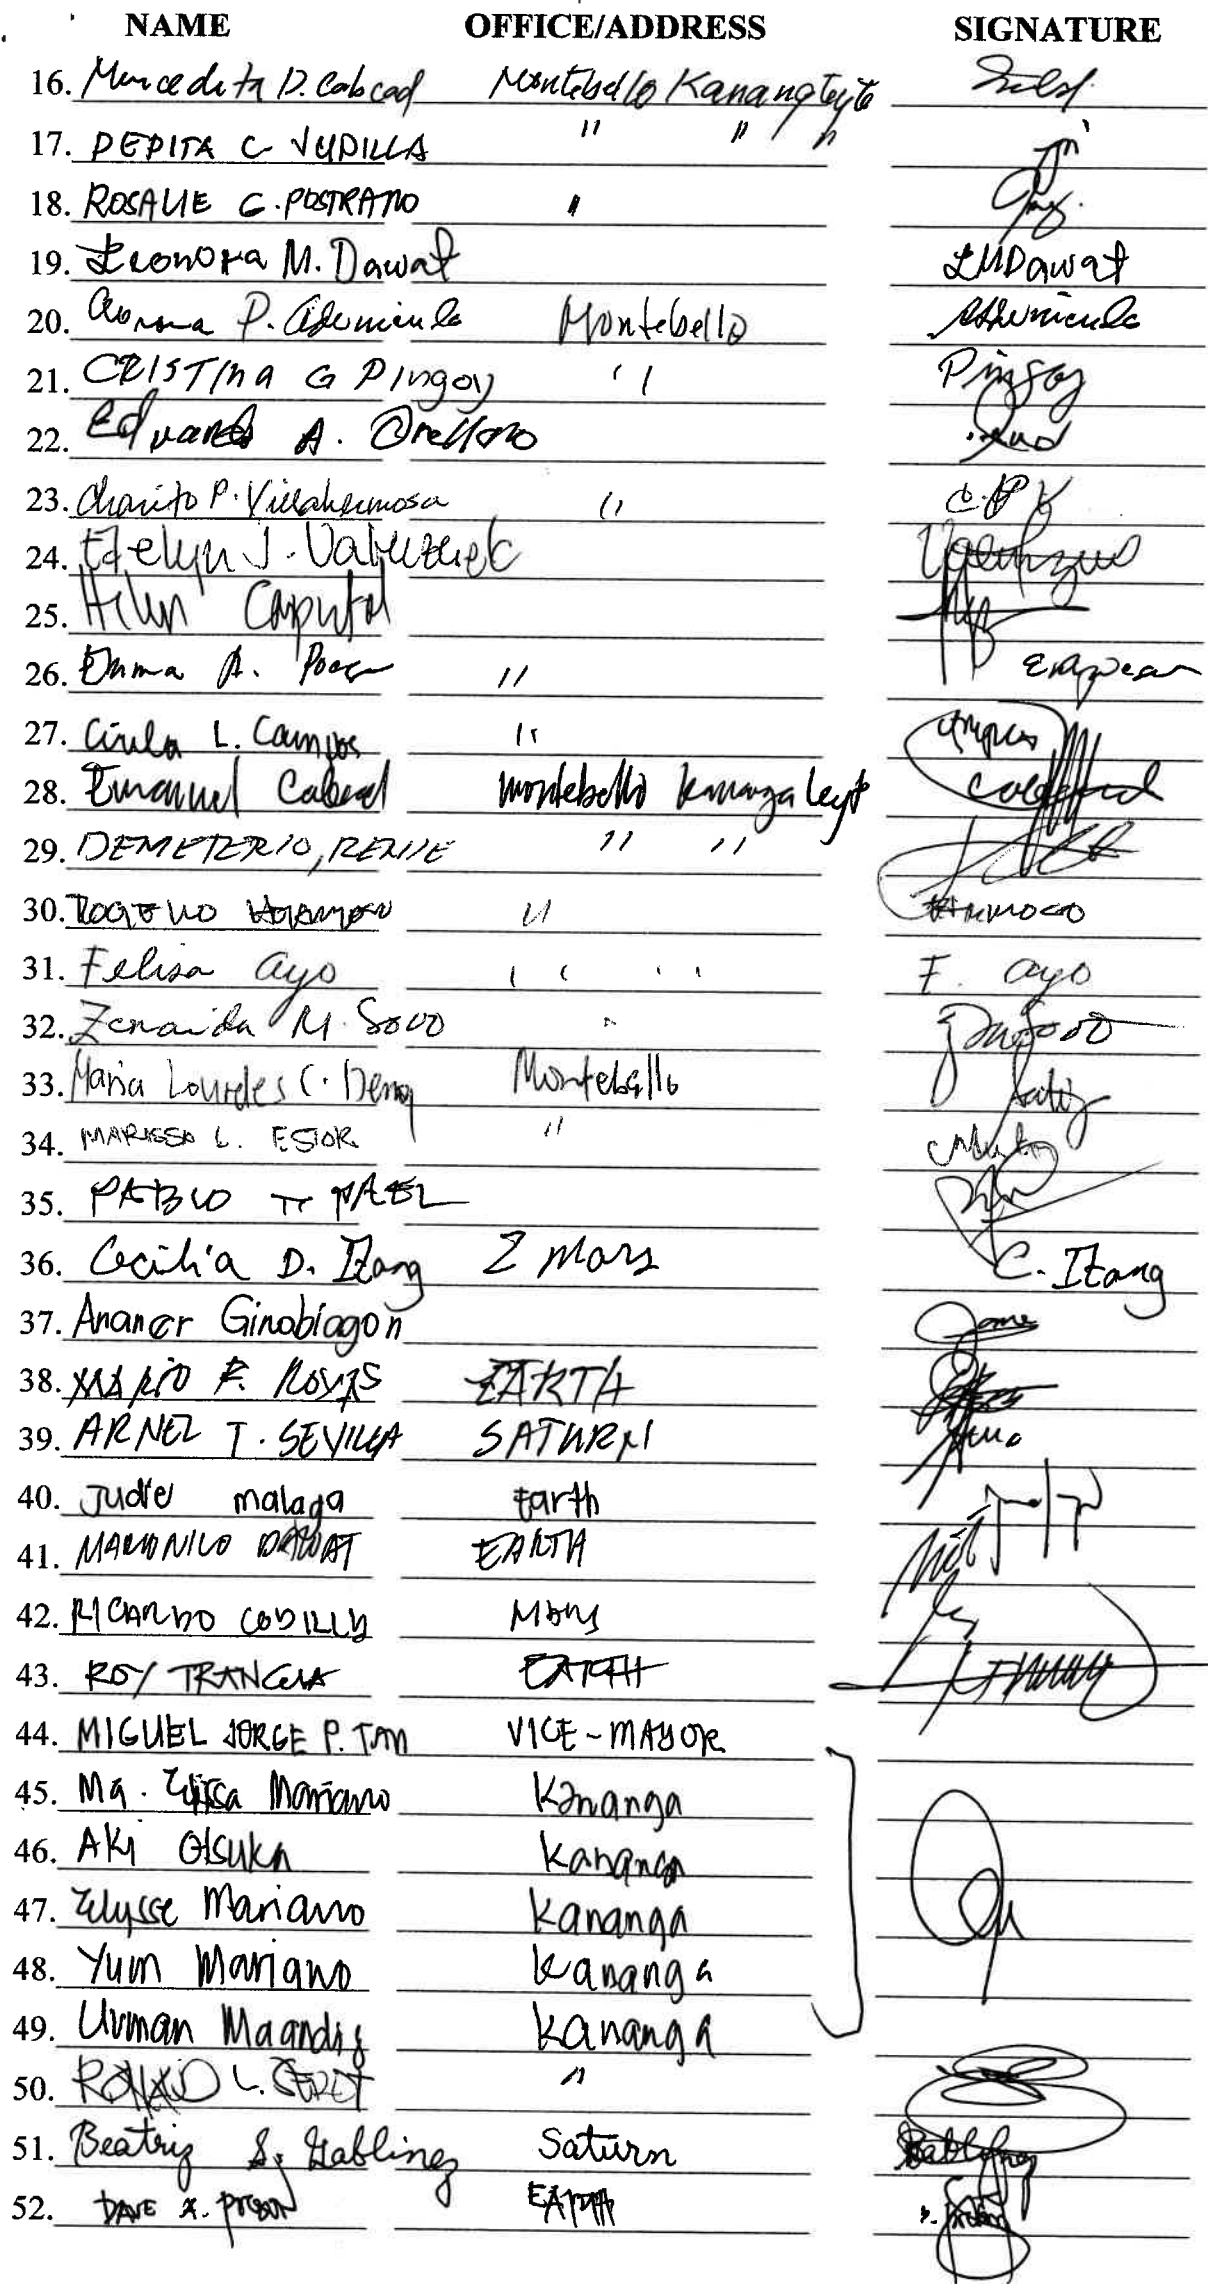 NAME OFFICE/ADDRESS SIGNATURE
16. Mercedita D. Cabcad Montebello Kananga Leyte
17. PEPITA C JUDILLA " " "
18. ROSALIE C. POSTRANO "
19. Leonora M. Dawat LMDawat
20. P. Montebello
21. CRISTINA G Pingoy " Pingoy
22. A. Orellano
23. Charito P. Villahermosa " C.P.V
24. Evelyn J.
25. Helen Caputol
26. Emma A. "
27. L. Campos " Campos
28. Emanuel Cabcad Montebello Kananga Leyte
29. DEMETERIO, RENIE " "
30. ROGELIO "
31. Felisa Ayo " " F. Ayo
32. Zenaida M. Soco "
33. Maria Lourdes C. Montebello
34. MARISSA L. ESTOR "
35. PABLO
36. Cecilia D. Itang 2 Mars C. Itang
37. Ginoblagon
38. MARIO F. ROYAS EARTH
39. ARNEL T. SEVILLA SATURN
40. Judie malaga Earth
41. MARIONILO DAWAT EARTH
42. RICARDO CODILLA Mars
43. ROY TRANGIA EARTH
44. MIGUEL JORGE P. TAN VICE-MAYOR
45. Ma. Elissa Mariano Kananga
46. Aki Otsuka Kananga
47. Elysse Mariano Kananga
48. Yum Mariano Kananga
49. Urman Maandig Kananga
50. RONALD L. "
51. Beatriz S. Gablinez Saturn
52. DAVE EARTH